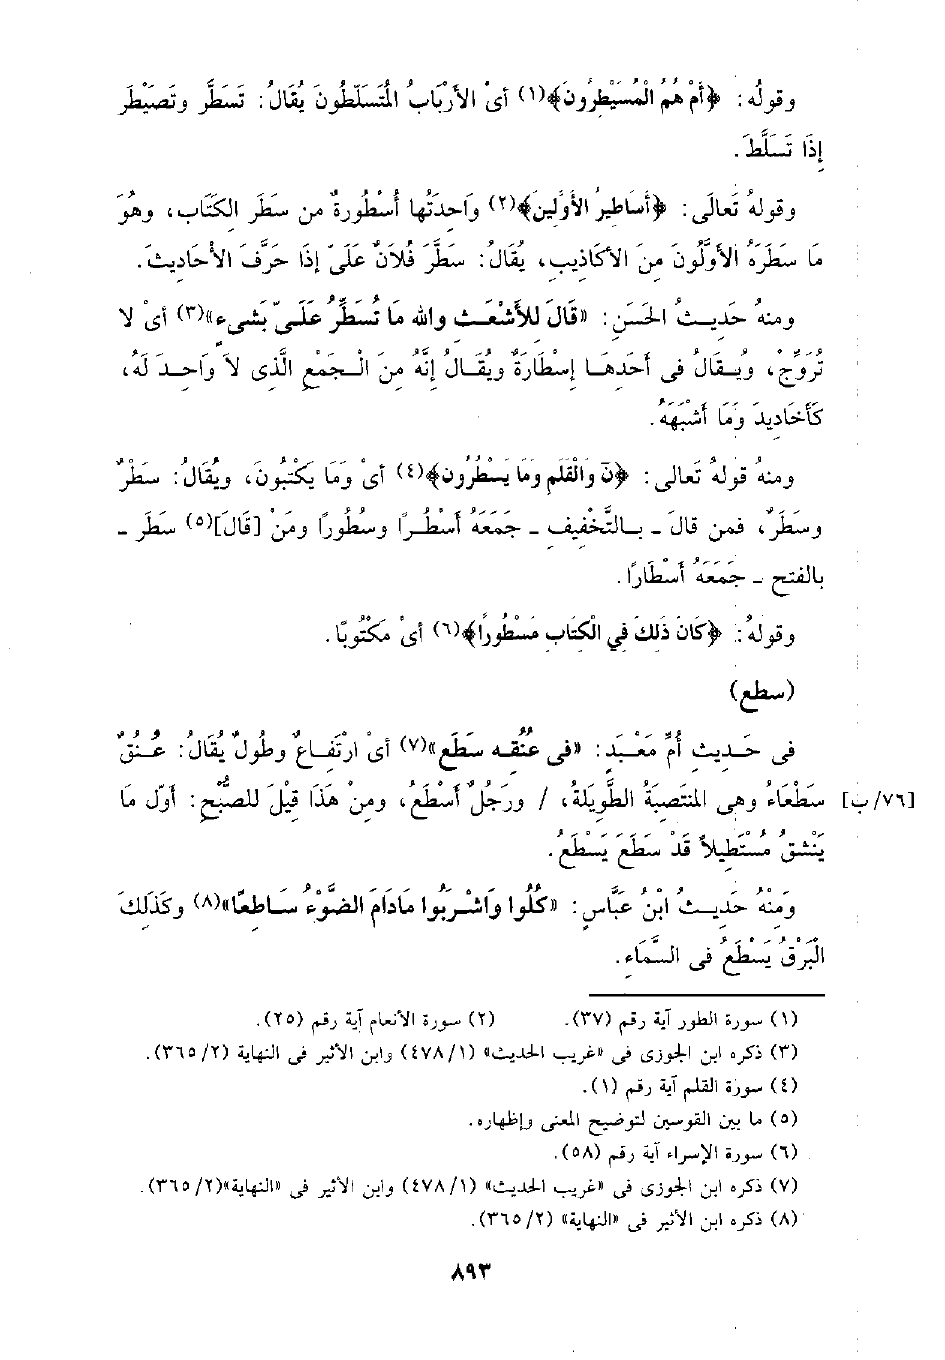 وقولُه: ﴿أَمْ هُمُ الْمُسَيْطِرُونَ﴾(١) أىْ الأَرْبَابُ المُتَسَلِّطُونَ يُقَالُ: تَسَطَّر وتَصَيْطَر
إِذَا تَسَلَّطَ.
وقولهُ تَعالَى: ﴿أَسَاطِيرُ الأَوَّلِينَ﴾(٢) وَاحِدَتُها أُسْطُورةٌ من سَطَر الكَتَاب، وهُوَ
مَا سَطَرَهُ الأوَّلُونَ مِنَ الأكَاذِيبِ، يُقَالُ: سَطَّرَ فُلاَنٌ عَلَىّ إذَا حَرَّفَ الأحَاديثَ.
ومنهُ حَديثُ الحَسَنِ: «قَالَ للأَشْعَث والله مَا تُسَطِّرُ عَلَىّ بَشىء»(٣) أىْ لا
تُرَوِّجْ، ويُقَالُ فى أَحَدِهَا إسْطَارَةٌ ويُقَالُ إنَّهُ مِنَ الْجَمْعِ الَّذِى لاَ وَاحِدَ لَهُ،
كَأَخَاديدَ وَمَا أَشْبَهَهُ.
ومنهُ قولهُ تَعالى: ﴿نَ وَالْقَلَمِ وَمَا يَسْطُرُونَ﴾(٤) أىْ وَمَا يَكْتُبُونَ، ويُقَالُ: سَطْرٌ
وسَطَرٌ، فمن قالَ ـ بالتَّخْفيف ـ جَمَعَهُ أَسْطُرًا وسُطُورًا ومَنْ [قَالَ](٥) سَطَر ـ
بالفتح ـ جَمَعَهُ أَسْطَارًا.
وقولهُ: ﴿كَانَ ذَلِكَ فِي الْكِتَابِ مَسْطُورًا﴾(٦) أىْ مَكْتُوبًا.
(سطع)
فى حَديث أُمِّ مَعْبَدٍ: «فى عُنُقه سَطَع»(٧) أىْ ارْتَفَاعٌ وطُولٌ يُقَالُ: عُنُقٌ
[٧٦/ب] سَطْعَاءُ وهى المُنْتَصبَةُ الطَّوِيلَةُ، / ورَجُلٌ أَسْطَعُ، ومنْ هَذَا قيْلَ للصُّبْحِ: أوّل مَا
يَنْشقُ مُسْتَطيلاً قَدْ سَطَعَ يَسْطَعُ.
وَمنْهُ حَديثُ ابْنُ عبَّاسٍ: «كُلُوا وَاشْرَبُوا مَادَامَ الضَوْءُ سَاطعًا»(٨) وكَذَلكَ
الْبَرْقُ يَسْطَعُ فى السَّمَاءِ.
(١) سورة الطور آية رقم (٣٧). (٢) سورة الأنعام آية رقم (٢٥).
(٣) ذكره ابن الجوزى فى «غريب الحديث» (٤٧٨/١) وابن الأثير فى النهاية (٣٦٥/٢).
(٤) سورة القلم آية رقم (١).
(٥) ما بين القوسين لتوضيح المعنى وإظهاره.
(٦) سورة الإسراء آية رقم (٥٨).
(٧) ذكره ابن الجوزى فى «غريب الحديث» (٤٧٨/١) وابن الأثير فى «النهاية»(٣٦٥/٢).
(٨) ذكره ابن الأثير فى «النهاية» (٣٦٥/٢).
٨٩٣